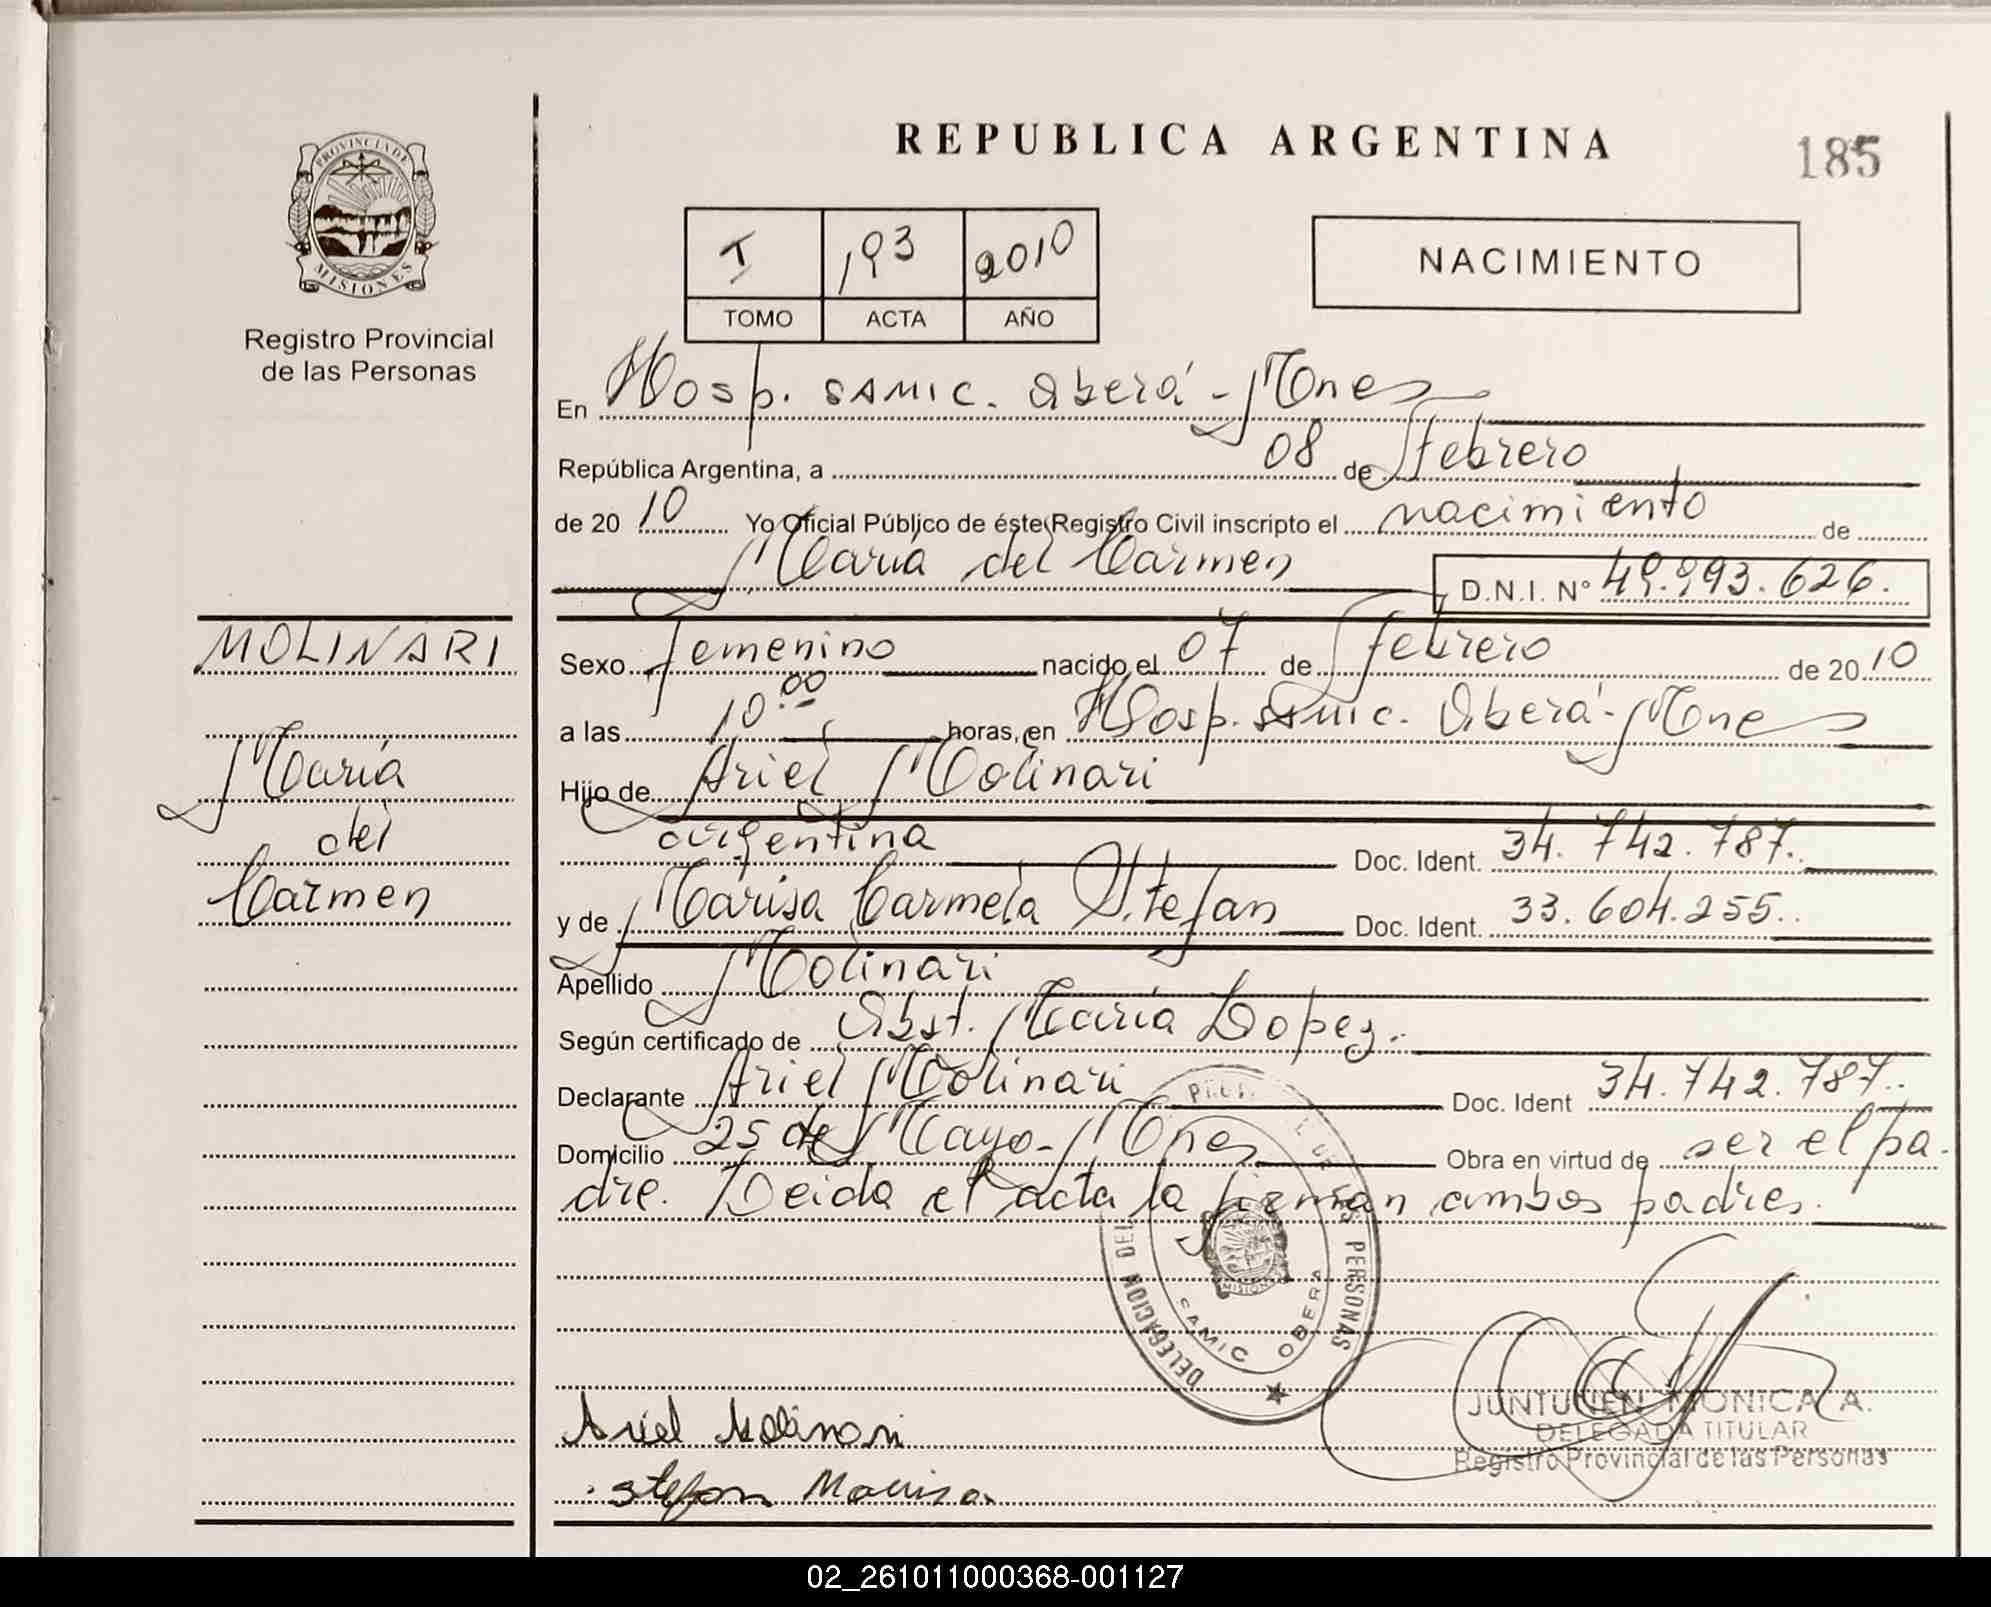 REPUBLICA ARGENTINA
185
PROVINCIA DE
MISIONES
Registro Provincial
de las Personas
I 193 2010
TOMO ACTA AÑO
NACIMIENTO
En Hosp. SAMIC. Oberá - Mnes
República Argentina, a 08 de febrero
de 2010 Yo Oficial Público de éste Registro Civil inscripto el nacimiento de
María del Carmen D.N.I. Nº 49.993.626.
MOLINARI
María
del
Carmen
Sexo femenino nacido el 07 de febrero de 2010
a las 10:00 horas, en Hosp. SAMIC. Oberá - Mnes
Hijo de Ariel Molinari
argentina Doc. Ident. 34.742.787.
y de Marisa Carmela Stefan Doc. Ident. 33.604.255.
Apellido Molinari
Según certificado de Obst. María Lopez.
Declarante Ariel Molinari Doc. Ident 34.742.787.
Domicilio 25 de Mayo - Mnes Obra en virtud de ser el pa-
dre. Leida el acta la firman ambos padres.
DELEGACION DEL
LAS PERSONAS
MISIONES
SAMIC OBERA
Ariel Molinari
Stefan Marisa
JUNTUNEN MONICA A.
DELEGADA TITULAR
Registro Provincial de las Personas
02_261011000368-001127